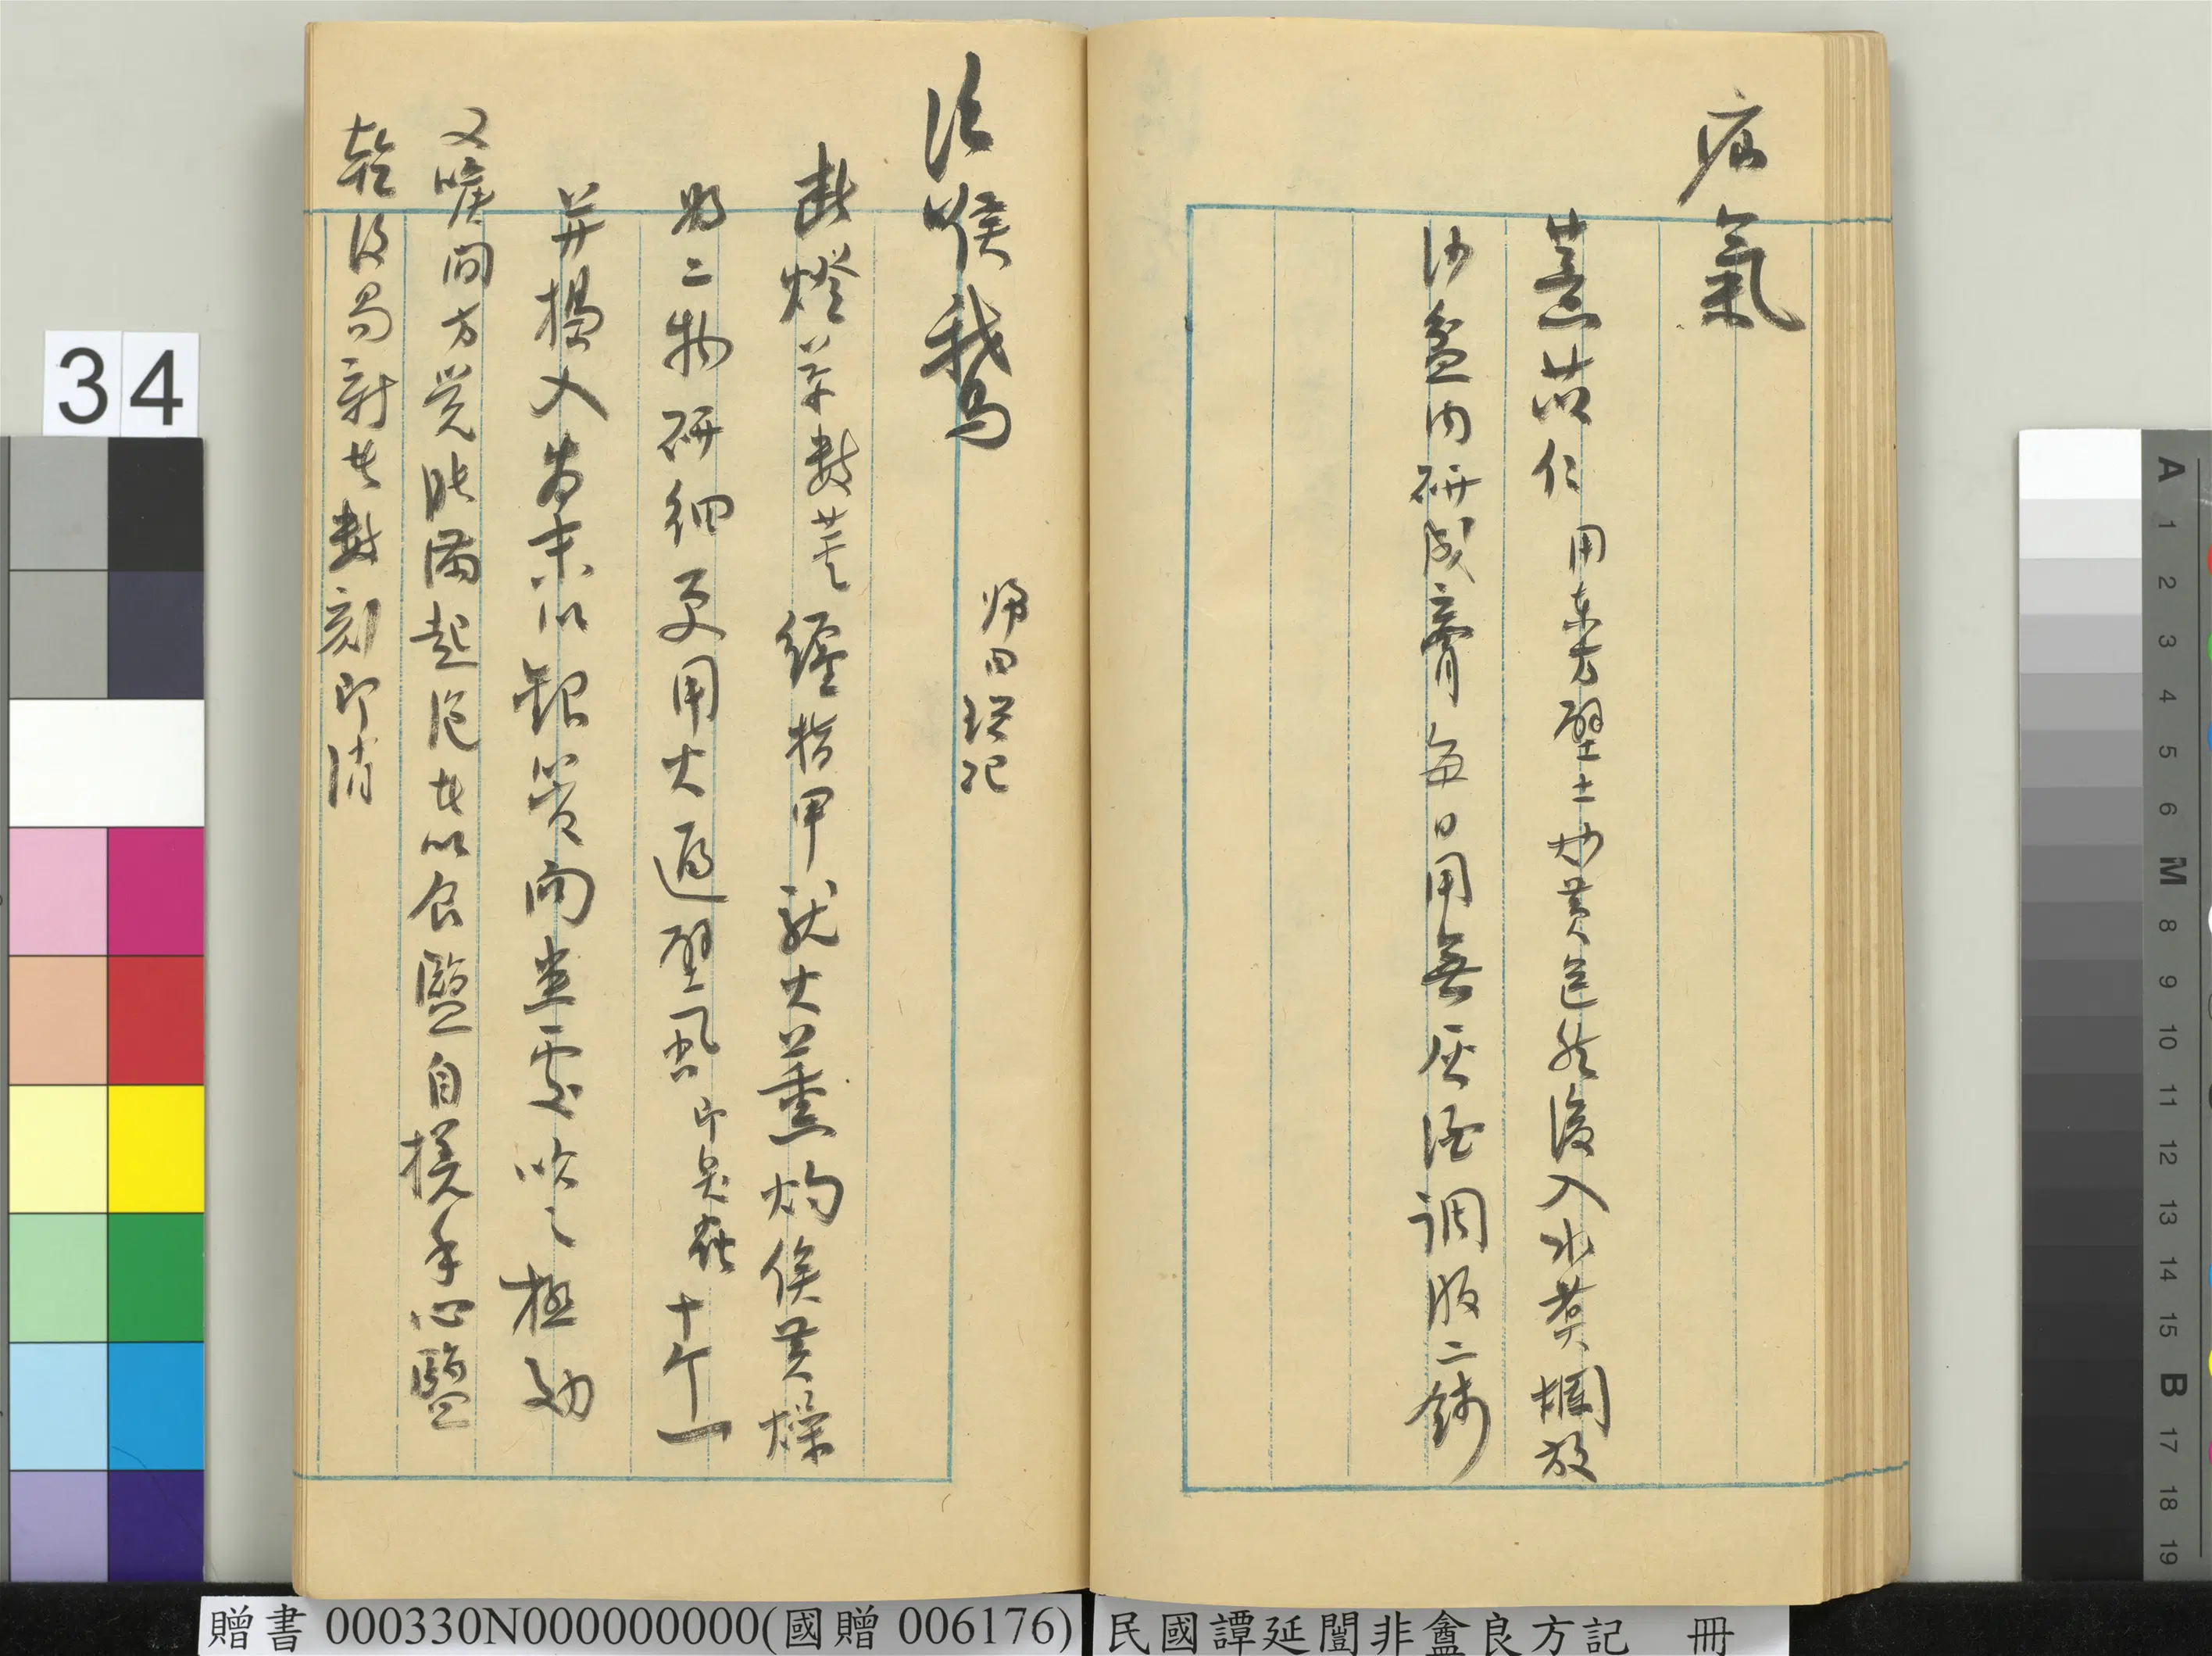 疝氣
薏苡仁 用東方壁土炒黃色然後入水煑爛放
沙盆內研成膏每日用無灰酒調服二錢
治喉鵝 歸田瑣記
斷燈草數莖纏指甲就火薰灼俟黃燥
將二物研細更用火逼壁蝨即臭蟲十个一
并搗入爲末以銀管向患處吹之極効
又喉間方覺脹滿起泡者以食鹽自搓手心鹽
乾復易新者數刻即消
34
贈書 000330N000000000(國贈 006176)
民國譚延闓非盦良方記 冊
A 1 2 3 4 5 6 M 8 9 10 11 12 13 14 15 B 17 18 19